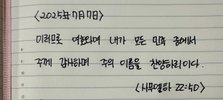 <2025년 7월 7일>
이러므로 여호와여 내가 모든 민족 중에서
주께 감사하며 주의 이름을 찬양하리이다.
(사무엘하 22:50)